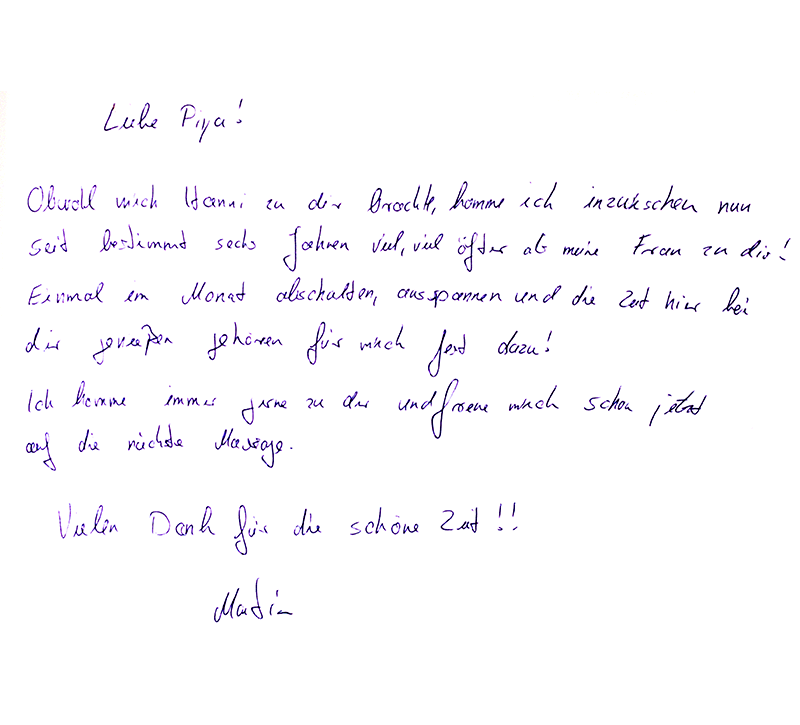 Liebe Piya!
Obwohl mich Hanni zu dir brachte, komme ich inzwischen nun
seit bestimmt sechs Jahren viel, viel öfter als meine Frau zu dir!
Einmal im Monat abschalten, ausspannen und die Zeit hier bei
dir genießen gehören für mich fest dazu!
Ich komme immer gerne zu dir und freue mich schon jetzt
auf die nächste Massage.
Vielen Dank für die schöne Zeit!!
Martin